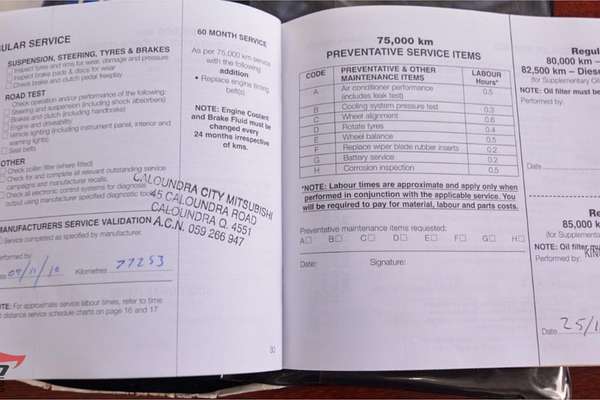 ULAR SERVICE
SUSPENSION, STEERING, TYRES & BRAKES
Inspect tyres and rims for wear, damage and pressure
Inspect brake pads & discs for wear
Check brake and clutch pedal freeplay
ROAD TEST
Check operation and/or performance of the following:
Steering and suspension (including shock absorbers)
Brakes and clutch (including handbrake)
Engine and driveability
Vehicle lighting (including instrument panel, interior and
warning lights)
Seat belts
OTHER
Check pollen filter (where fitted)
Check for and complete all relevant outstanding service
campaigns and manufacture recalls.
Check all electronic control systems for diagnostic
output using manufacturer specified diagnostic
MANUFACTURERS SERVICE VALIDATION
Service completed as specified by manufacturer.
Kilometres 77253
NOTE: For approximate service labour times, refer to time
distance service schedule charts on page 16 and 17
60 MONTH SERVICE
As per 75,000 km service
with the following
addition
• Replace engine timing
belt(s)
NOTE: Engine Coolant
and Brake Fluid must be
changed every
24 months irrespective
of kms.
CALOUNDRA CITY MITSUBISHI
45 CALOUNDRA ROAD
CALOUNDRA Q. 4551
A.C.N. 059 266 947
75,000 km
PREVENTATIVE SERVICE ITEMS
CODE PREVENTATIVE & OTHER MAINTENANCE ITEMS LABOUR Hours*
A Air conditioner performance (includes leak test) 0.5
B Cooling system pressure test 0.3
C Wheel alignment 0.6
D Rotate tyres 0.4
E Wheel balance 0.5
F Replace wiper blade rubber inserts 0.2
G Battery service 0.2
H Corrosion inspection 0.5
*NOTE: Labour times are approximate and apply only when
performed in conjunction with the applicable service. You
will be required to pay for material, labour and parts costs.
Preventative maintenance items requested:
A B C D E F G H
Date: Signature:
Regu
80,000 km –
82,500 km – Diese
(for Supplementary Oil
NOTE: Oil filter must be
Performed by:
Date
Re
85,000 k
(for Supplementa
NOTE: Oil filter mus
Performed by:
Date 25/1